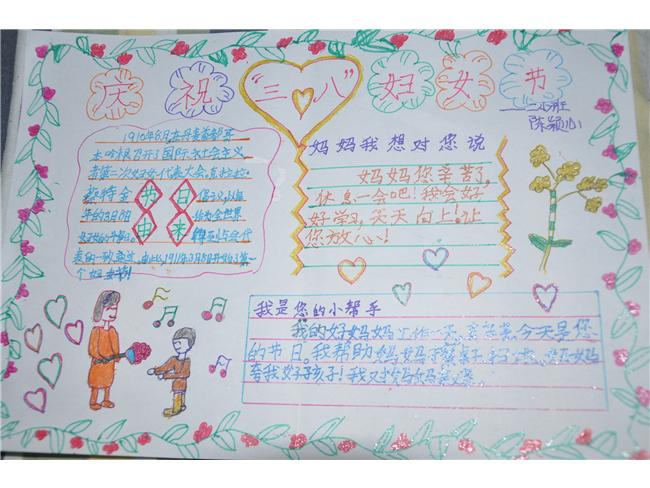 庆祝"三八"妇女节
二小班
陈颖心
1910年8月在丹麦首都哥
本哈根召开了国际社会主义
者第二次妇女代表大会,克拉拉.
蔡特金
节日由来
倡议,以每
年的3月8日
作为全世界
妇女的节日。
得到与会代
表的一致
1911年3月8日
个妇女节!
妈妈我想对您说
妈妈您辛苦了,
休息一会吧!我会好
好学习,天天向上!让
您放心!
我是您的小帮手
我的好妈妈,工作一天
今天是您
的节日,我帮助妈妈
妈妈
夸我好孩子!我又